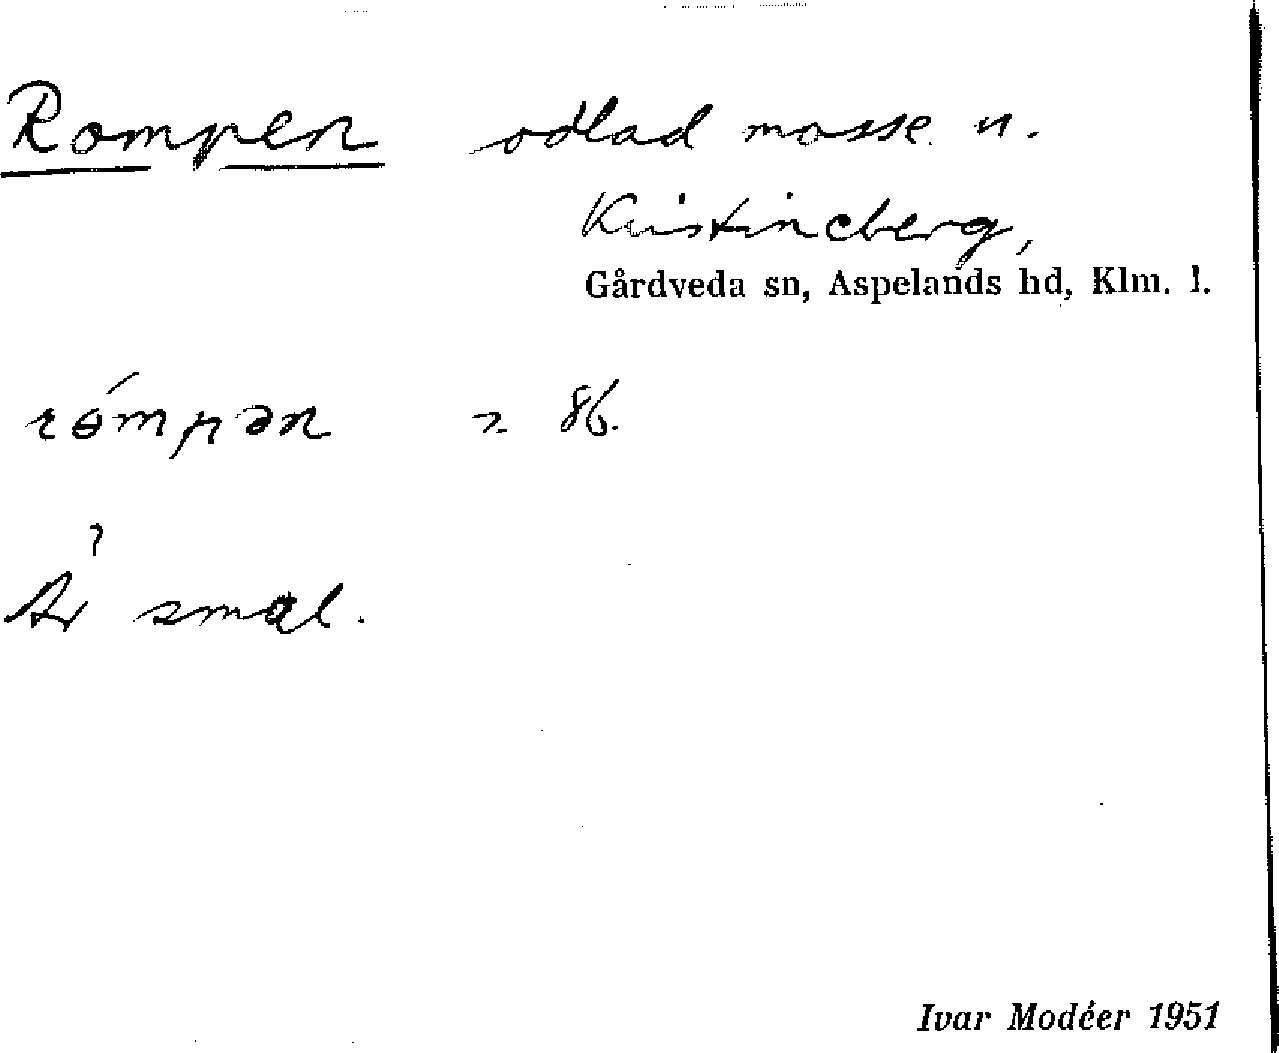 Rompen odlad mosse n.
Kristineberg,
Gårdveda sn, Aspelands hd, Klm. l.
rómpən 2 86.
?
Är smal.
Ivar Modéer 1951